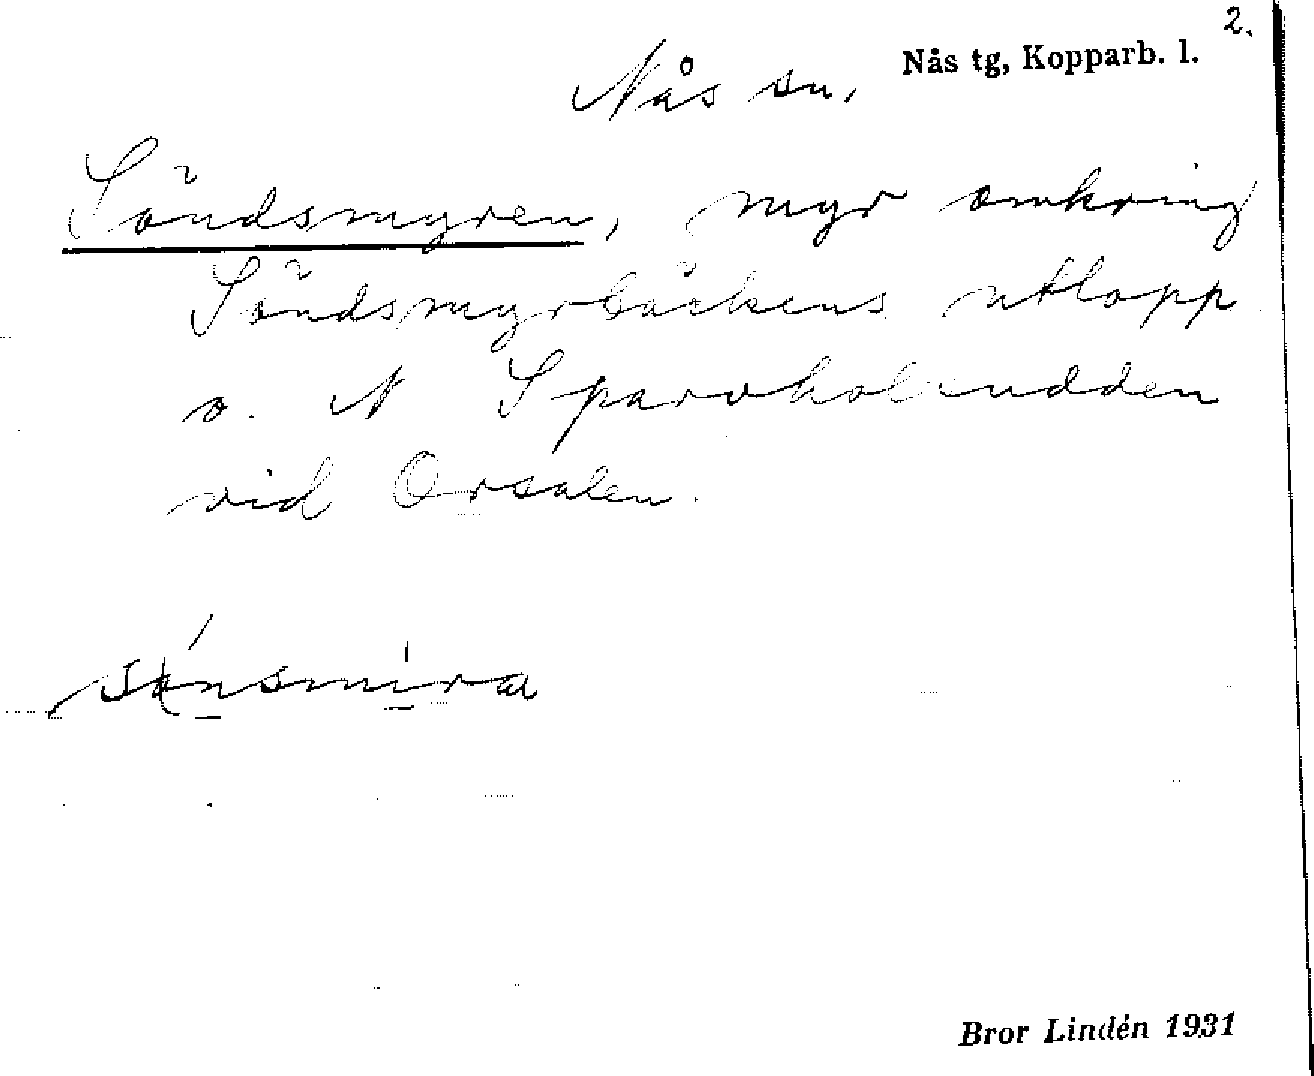 2.
Nås tg, Kopparb. l.
Nås sn.
Söndsmyren, myr omkring
Söndsmyrbäckens utlopp
o. N Sparvholsudden
vid Orsalen.
Bror Lindén 1931